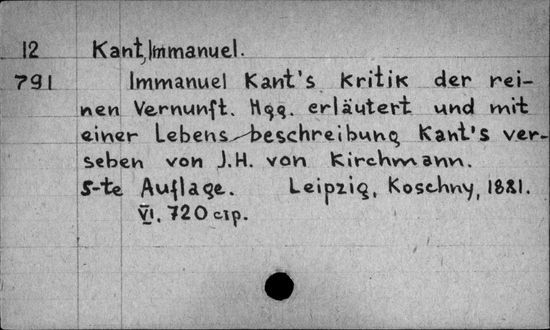 12 Kant, Immanuel.
791 Immanuel Kant's Kritik der rei-
nen Vernunft. Hgg. erläutert und mit
einer Lebens-beschreibung Kant's ver-
seben von J.H. von Kirchmann.
5-te Auflage. Leipzig, Koschny, 1881.
VI, 720 стр.